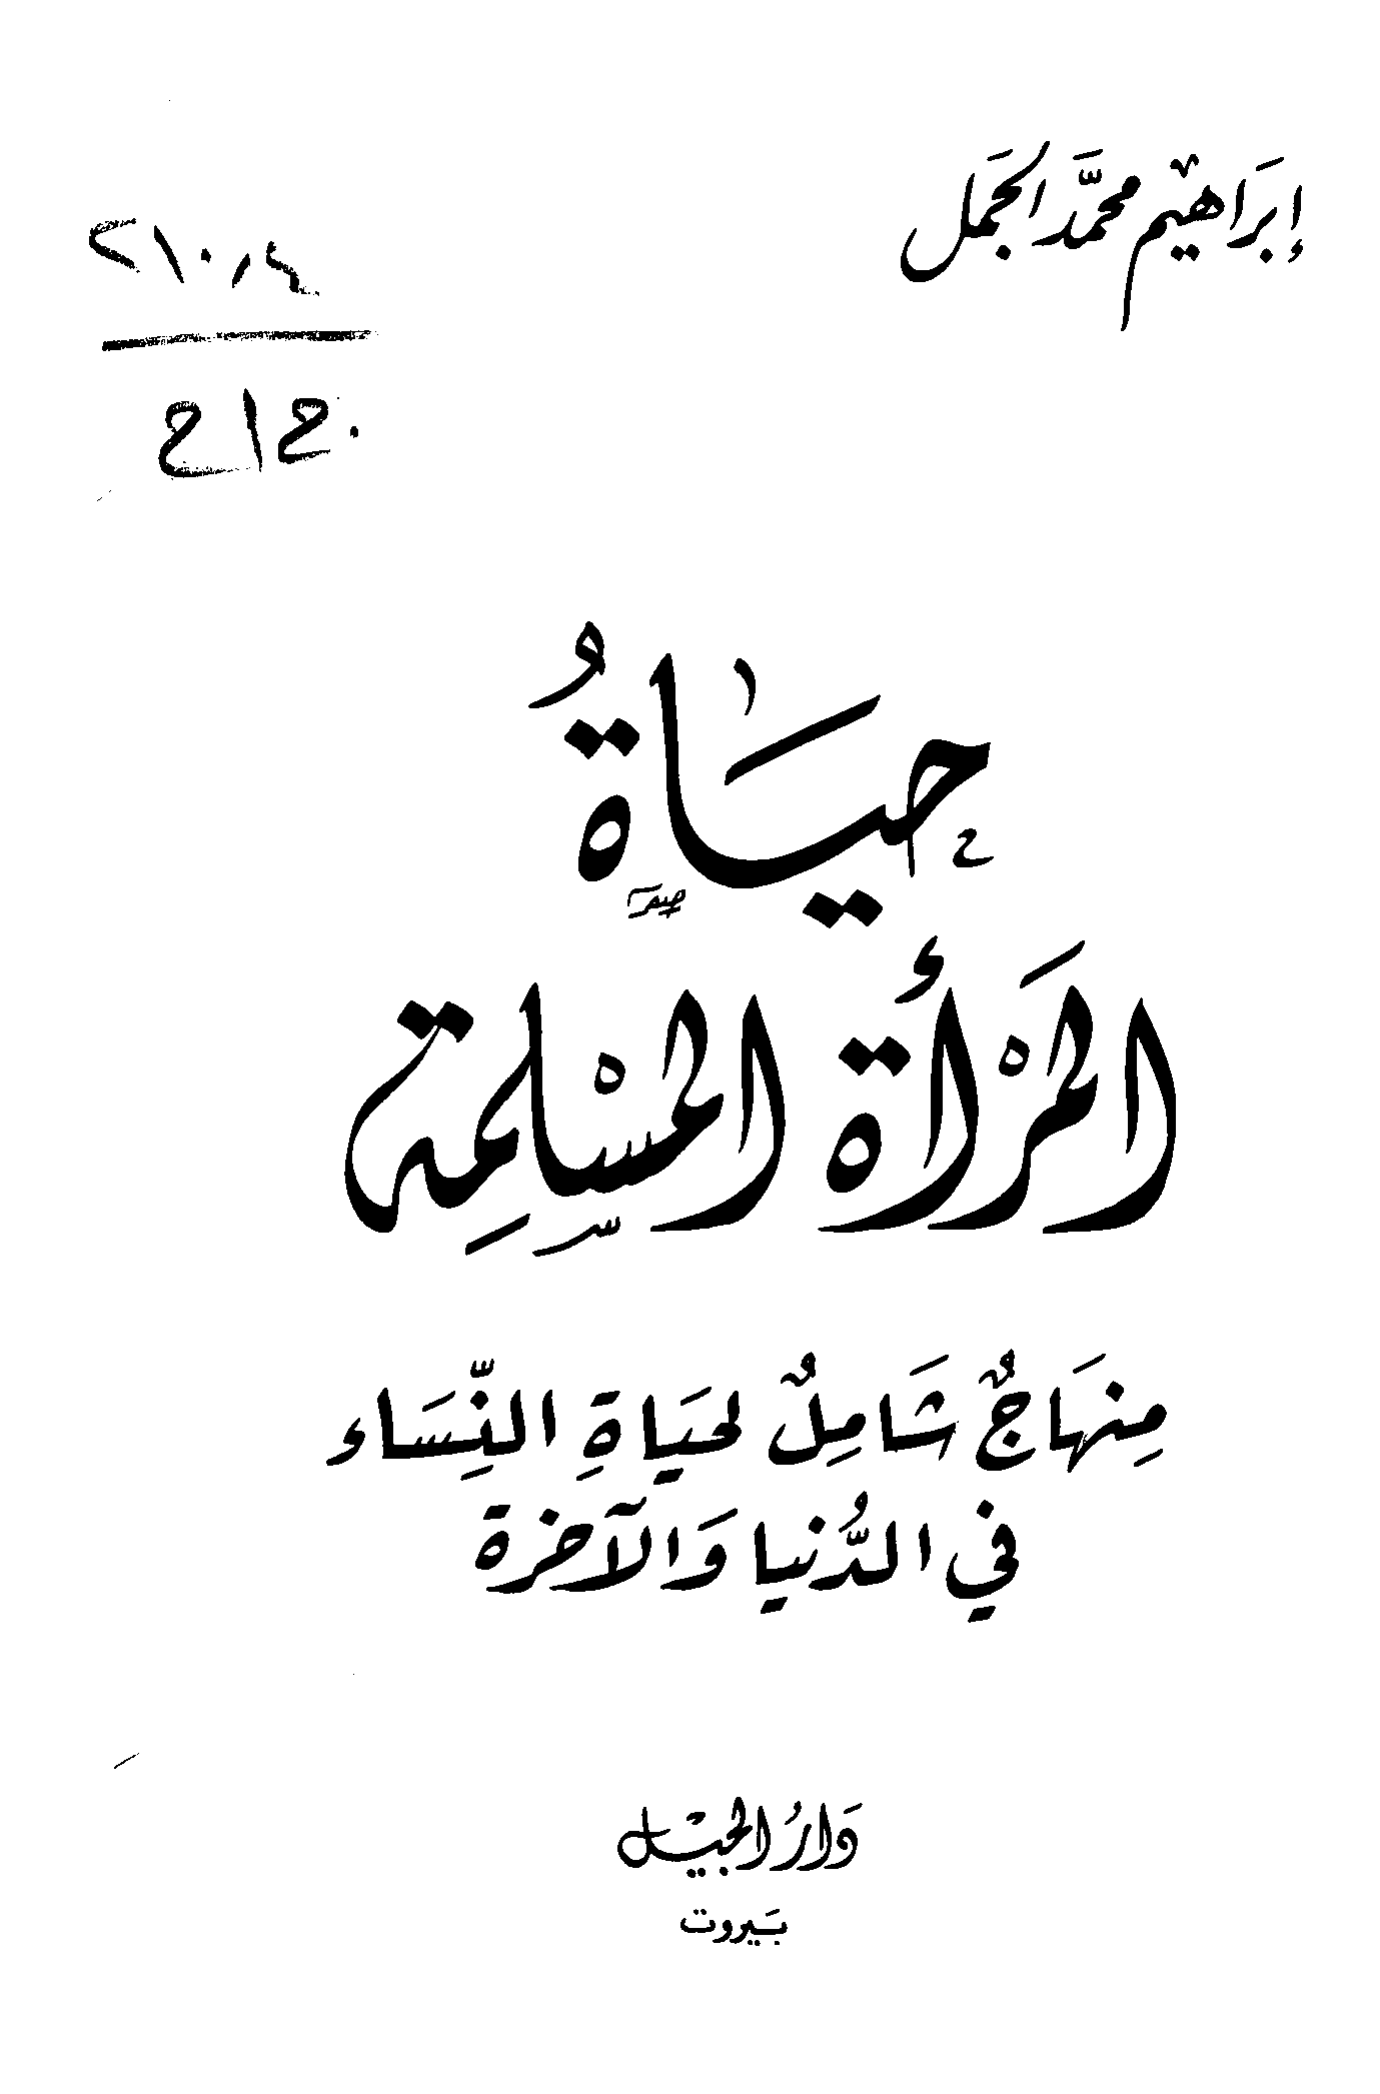 إبَراهيْم محمَّد الجَمل
حيَاةُ
المَرْأَة المسْلِمِة
مِنهَاجٌ شَامِلٌ لحيَاةِ النِّسَاء
في الدُّنيا وَالآخرة
دَارُ الجيْل
بَيروت